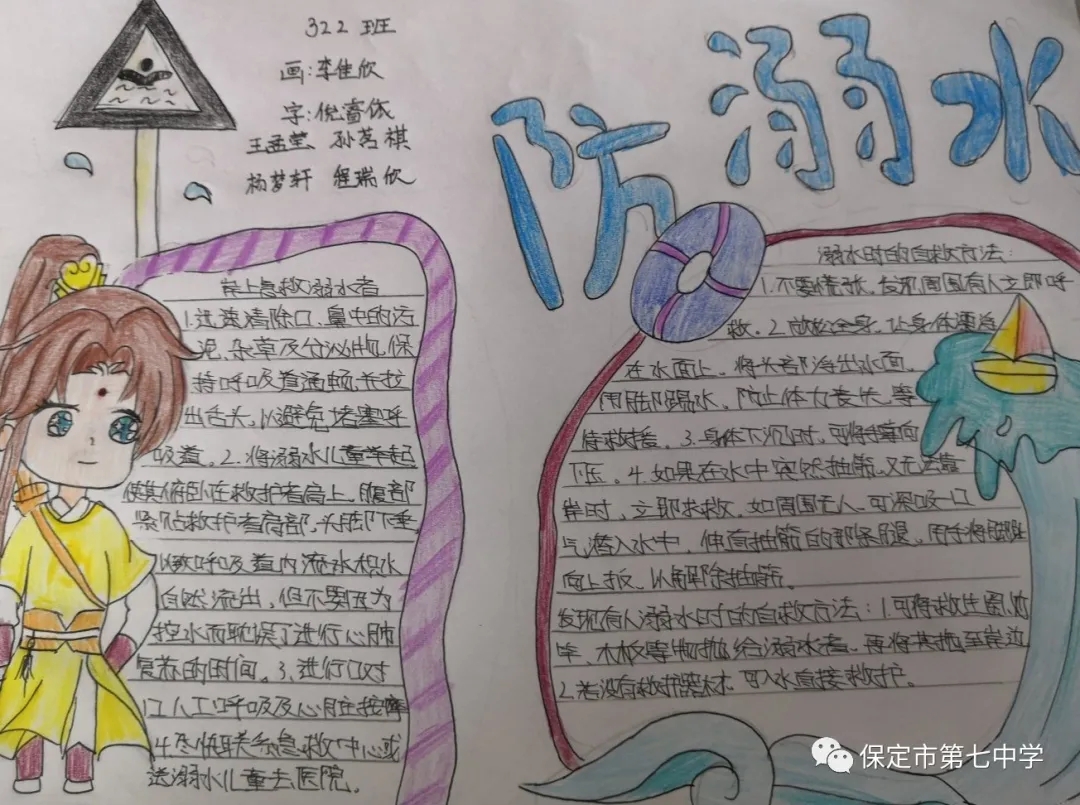 322 班
画:李佳欣
字:倪蓄依
王孟莹 孙茗祺
杨梦轩 程瑞欣
防溺水
岸上急救溺水者
1.迅速清除口、鼻中的污
泥、杂草及分泌物,保
持呼吸道通畅,并拉
出舌头,以避免堵塞呼
吸道。2.将溺水儿童举起
使其俯卧在救护者肩上,腹部
紧贴救护者肩部,头脚下垂
以致呼吸道内流水积水
自然流出,但不要因为
控水而耽误了进行心肺
复苏的时间。3.进行口对
口人工呼吸及心脏按摩
4.尽快联系急救中心或
送溺水儿童去医院。
溺水时的自救方法:
1.不要慌张,发现周围有人立即呼
救。2.放松全身,让身体漂浮
在水面上,将头部浮出水面,
用脚踢水,防止体力丧失,等
待救援。3.身体下沉时,可将手掌向
下压。4.如果在水中突然抽筋,又无法靠
岸时,立即求救。如周围无人,可深吸一口
气潜入水中,伸直抽筋的那条腿,用手将脚趾
向上扳,以解除抽筋。
发现有人溺水时的自救方法:1.可将救生圈、竹
竿、木板等物抛给溺水者,再将其拖至岸边
2.若没有救护器材,可入水直接救护。
保定市第七中学